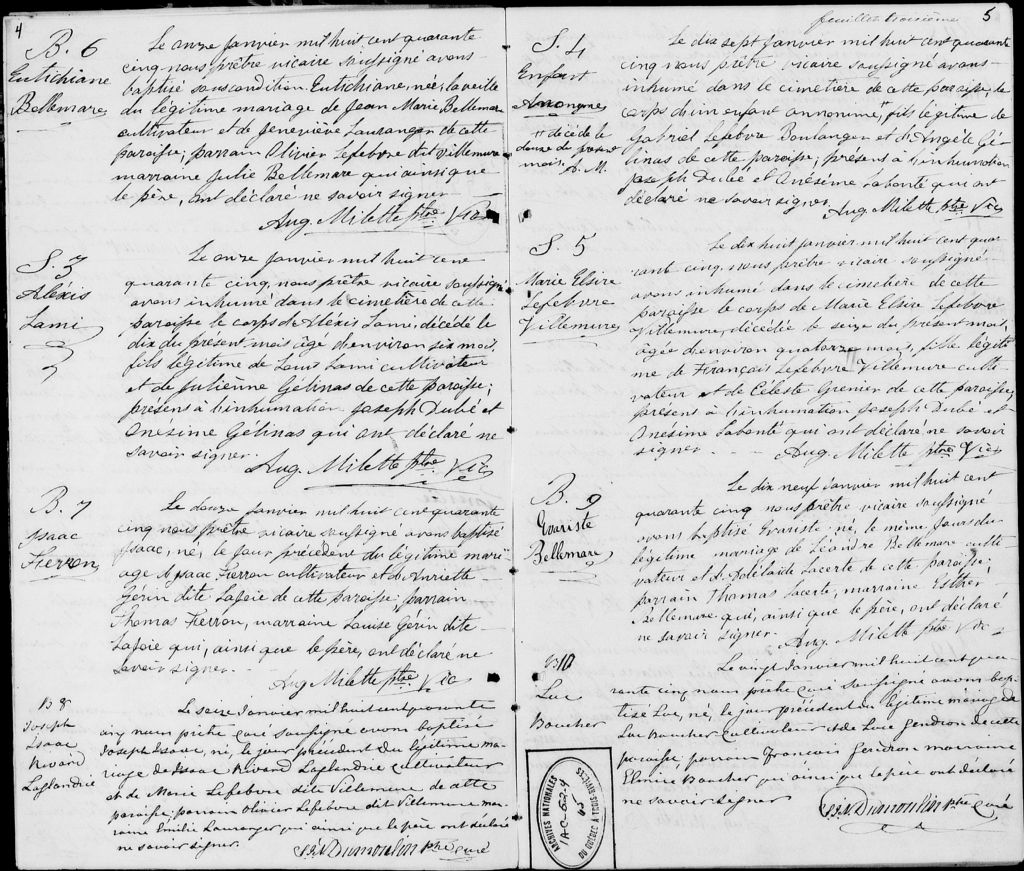 4
B. 6
Eutichiane
Bellemare
Le onze janvier mil huit cent quarante
cinq nous prêtre vicaire soussigné avons
baptisé sous condition Eutichiane, née, la veille
du légitime mariage de Jean Marie Bellemare
cultivateur et de Geneviève Lauranger de cette
paroisse; parrain Olivier Lefebvre dit Villemure
marraine Julie Bellemare qui ainsi que
le père, ont déclaré ne savoir signer
Aug. Milette ptre Vic
S. 3
Aléxis
Lami
Le onze janvier mil huit cent
quarante cinq, nous prêtre vicaire soussigné
avons inhumé dans le cimetière de cette
paroisse le corps de Aléxis Lami, décédé le
dix du present mois âgé d'environ six mois,
fils légitime de Louis Lami cultivateur
et de Julienne Gélinas de cette paroisse;
présens à l'inhumation Joseph Dubé et
Onésime Gélinas qui ont déclaré ne
savoir signer.
Aug. Milette ptre Vic
B. 7
Isaac
Ferron
Le douze janvier mil huit cent quarante
cinq nous prêtre vicaire soussigné avons baptisé
Isaac, né, le jour précédent du légitime mari
age d'Isaac Ferron cultivateur et d'Henriette
Gérin dite Lafoie de cette paroisse, parrain
Thomas Ferron, marraine Louise Gérin dite
Lafoie qui, ainsi que le père, ont déclaré ne
savoir signer.
Aug Milette ptre Vic
B 8
Joseph
Isaac
Rivard
Laglandrie
Le seize Janvier mil huit cent quarante
cinq nous prêtre curé soussigné avons baptisé
Joseph Isaac, né, le jour précédent du légitime ma-
riage de Isaac Rivard Laglandrie cultivateur
et de Marie Lefebvre dite Villemure de cette
paroisse, parrain Olivier Lefebvre dit Villemure mar
raine Emilie Lauranger qui ainsi que le père ont déclaré
ne savoir signer.
S. N. Dumoulin ptre curé
feuillet troisième
5
S. 4
Enfant
Anonyme
décédé le
douze du present
mois.
A. M.
Le dix sept janvier mil huit cent quarante
cinq nous prêtre vicaire soussigné avons
inhumé dans le cimetière de cette paroisse, le
corps d'un enfant annonime, fils légitime de
Gabriel Lefebvre Boulanger et d'Angèle Gé-
linas de cette paroisse; présens à l'inhumation
Joseph Dubé et Onésime Labonté qui ont
déclaré ne savoir signer.
Aug. Milette ptre Vic
S. 5
Marie Elsire
Lefebvre
Villemure
Le dix huit janvier mil huit cent qua
rante cinq, nous prêtre vicaire soussigné
avons inhumé dans le cimetière de cette
paroisse le corps de Marie Elsire Lefebvre
Villemure, décédée le seize du présent mois,
âgée d'environ quatorze mois, fille légiti
me de François Lefebvre Villemure culti
vateur et de Céleste Grenier de cette paroisse;
présens à l'inhumation Joseph Dubé et
Onésime Labonté qui ont déclaré ne savoir
signer.
Aug Milette ptre Vic
B. 9
Evariste
Bellemare
Le dix neuf janvier mil huit cent
quarante cinq nous prêtre vicaire soussigné
avons baptisé Evariste né, le même jour du
légitime mariage de Léandre Bellemare culti
vateur et d'Adélaïde Lacerte de cette paroisse,
parrain Thomas Lacerte, marraine Esther
Bellemare qui, ainsi que le père, ont déclaré
ne savoir signer.
Aug. Milette ptre Vic
B 10
Luc
Boucher
Le vingt Janvier mil huit cent qua-
rante cinq nous prêtre curé soussigné avons bap
tisé Luc, né, le jour précédent du légitime mariage de
Luc Boucher cultivateur et de Luce Gendron de cette
paroisse, parrain François Gendron marraine
Elmire Boucher qui ainsi que le père ont déclaré
ne savoir signer
S. N. Dumoulin ptre curé
ARCHIVES NATIONALES
DU QUÉBEC À TROIS-RIVIÈRES